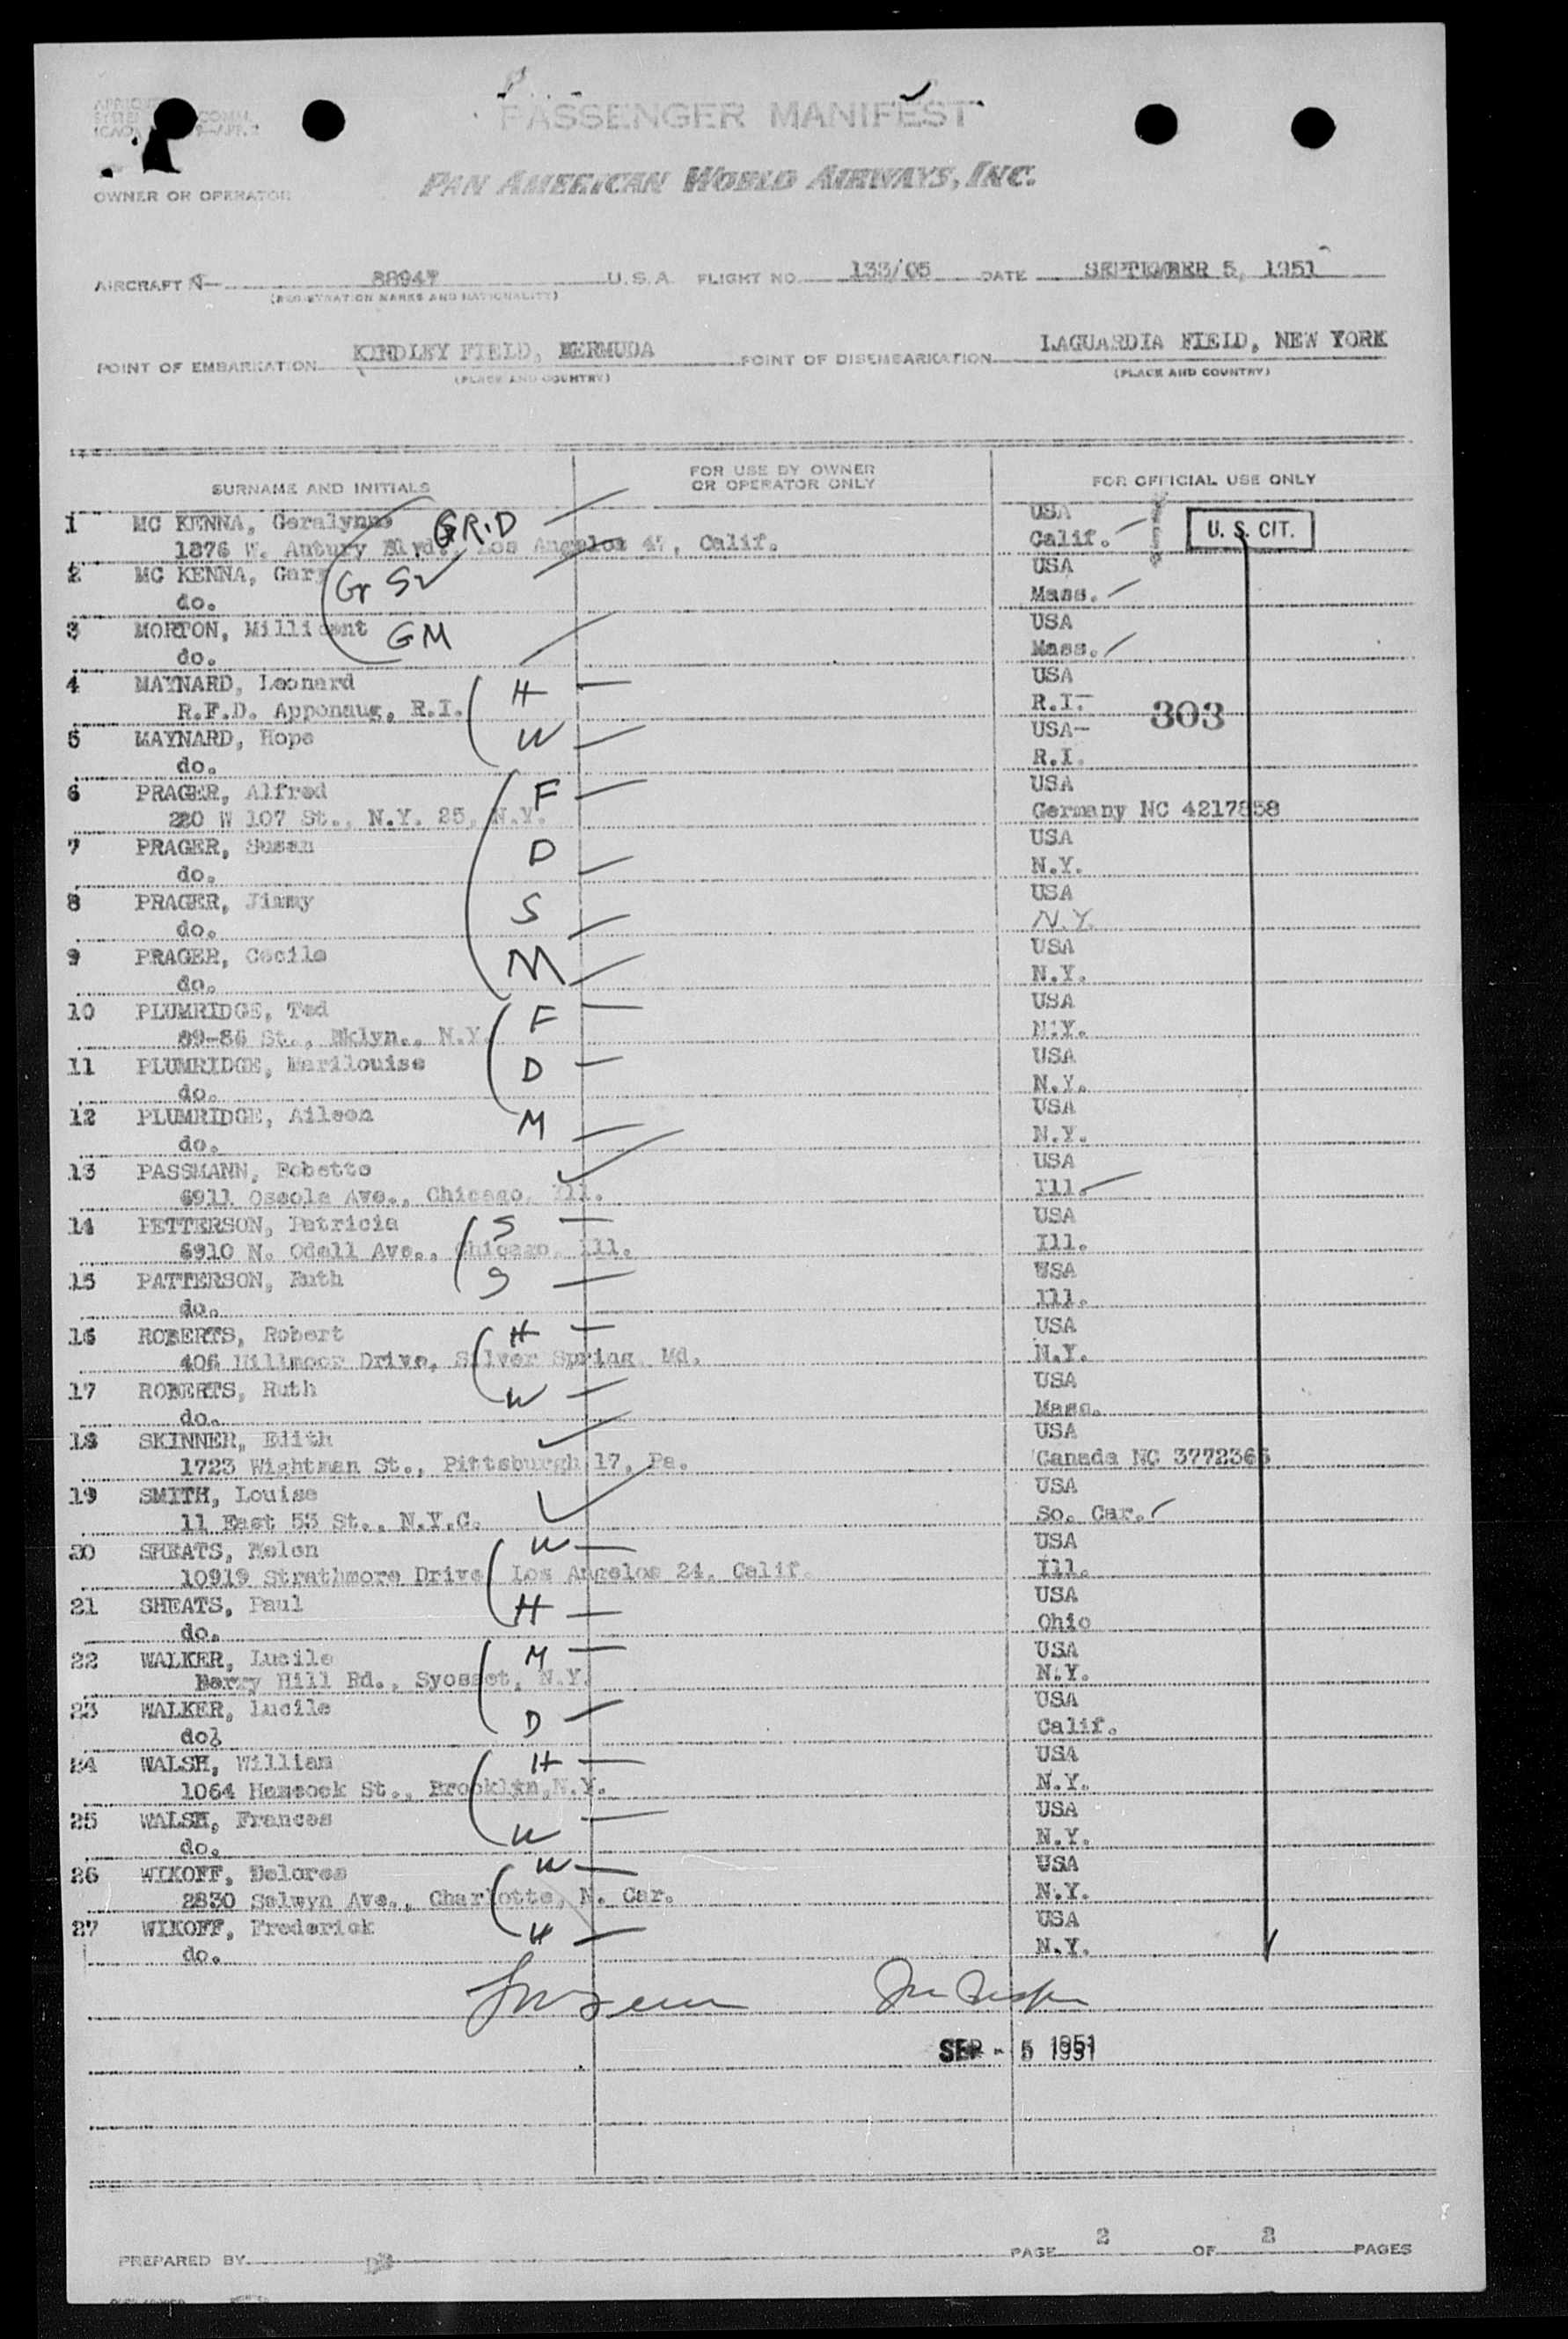 PASSENGER MANIFEST
PAN AMERICAN WORLD AIRWAYS, INC.
OWNER OR OPERATOR
AIRCRAFT N- 88947 U.S.A. FLIGHT NO. 133/05 DATE SEPTEMBER 5, 1951
(REGISTRATION MARKS AND NATIONALITY)
POINT OF EMBARKATION KINDLEY FIELD, BERMUDA POINT OF DISEMBARKATION LAGUARDIA FIELD, NEW YORK
(PLACE AND COUNTRY) (PLACE AND COUNTRY)
SURNAME AND INITIALS FOR USE BY OWNER OR OPERATOR ONLY FOR OFFICIAL USE ONLY
1 MC KENNA, Geralynne GR.D USA
1876 W. Antury Blvd., Los Angelos 47, Calif. Calif. U.S. CIT.
2 MC KENNA, Gary Gr S USA
do. Mass.
3 MORTON, Millicent GM USA
do. Mass.
4 MAYNARD, Leonard H USA
R.F.D. Apponaug, R.I. R.I. 303
5 MAYNARD, Hope W USA
do. R.I.
6 PRAGER, Alfred F USA
220 W 107 St., N.Y. 25, N.Y. Germany NC 4217858
7 PRAGER, Susan D USA
do. N.Y.
8 PRAGER, Jimmy S USA
do. N.Y.
9 PRAGER, Cecile M USA
do. N.Y.
10 PLUMRIDGE, Ted F USA
89-86 St., Bklyn., N.Y. N.Y.
11 PLUMRIDGE, Marilouise D USA
do. N.Y.
12 PLUMRIDGE, Aileen M USA
do. N.Y.
13 PASSMANN, Bobette USA
6911 Oscola Ave., Chicago, Ill. Ill.
14 PETTERSON, Patricia S USA
6910 N. Odell Ave., Chicago, Ill. Ill.
15 PATTERSON, Ruth S USA
do. Ill.
16 ROBERTS, Robert H USA
406 Hillmoor Drive, Silver Spring, Md. N.Y.
17 ROBERTS, Ruth W USA
do. Mass.
18 SKINNER, Edith USA
1723 Wightman St., Pittsburgh 17, Pa. Canada NC 3772365
19 SMITH, Louise USA
11 East 53 St., N.Y.C. So. Car.
20 SHEATS, Helen W USA
10919 Strathmore Drive Los Angelos 24, Calif. Ill.
21 SHEATS, Paul H USA
do. Ohio
22 WALKER, Lucile M USA
Berry Hill Rd., Syosset, N.Y. N.Y.
23 WALKER, lucile D USA
do. Calif.
24 WALSH, William H USA
1064 Hancock St., Brooklyn, N.Y. N.Y.
25 WALSH, Frances W USA
do. N.Y.
26 WIKOFF, Delores W USA
2830 Selwyn Ave., Charlotte, N. Car. N.Y.
27 WIKOFF, Frederick H USA
do. N.Y.
SEP - 5 1951
PREPARED BY PAGE 2 OF 2 PAGES